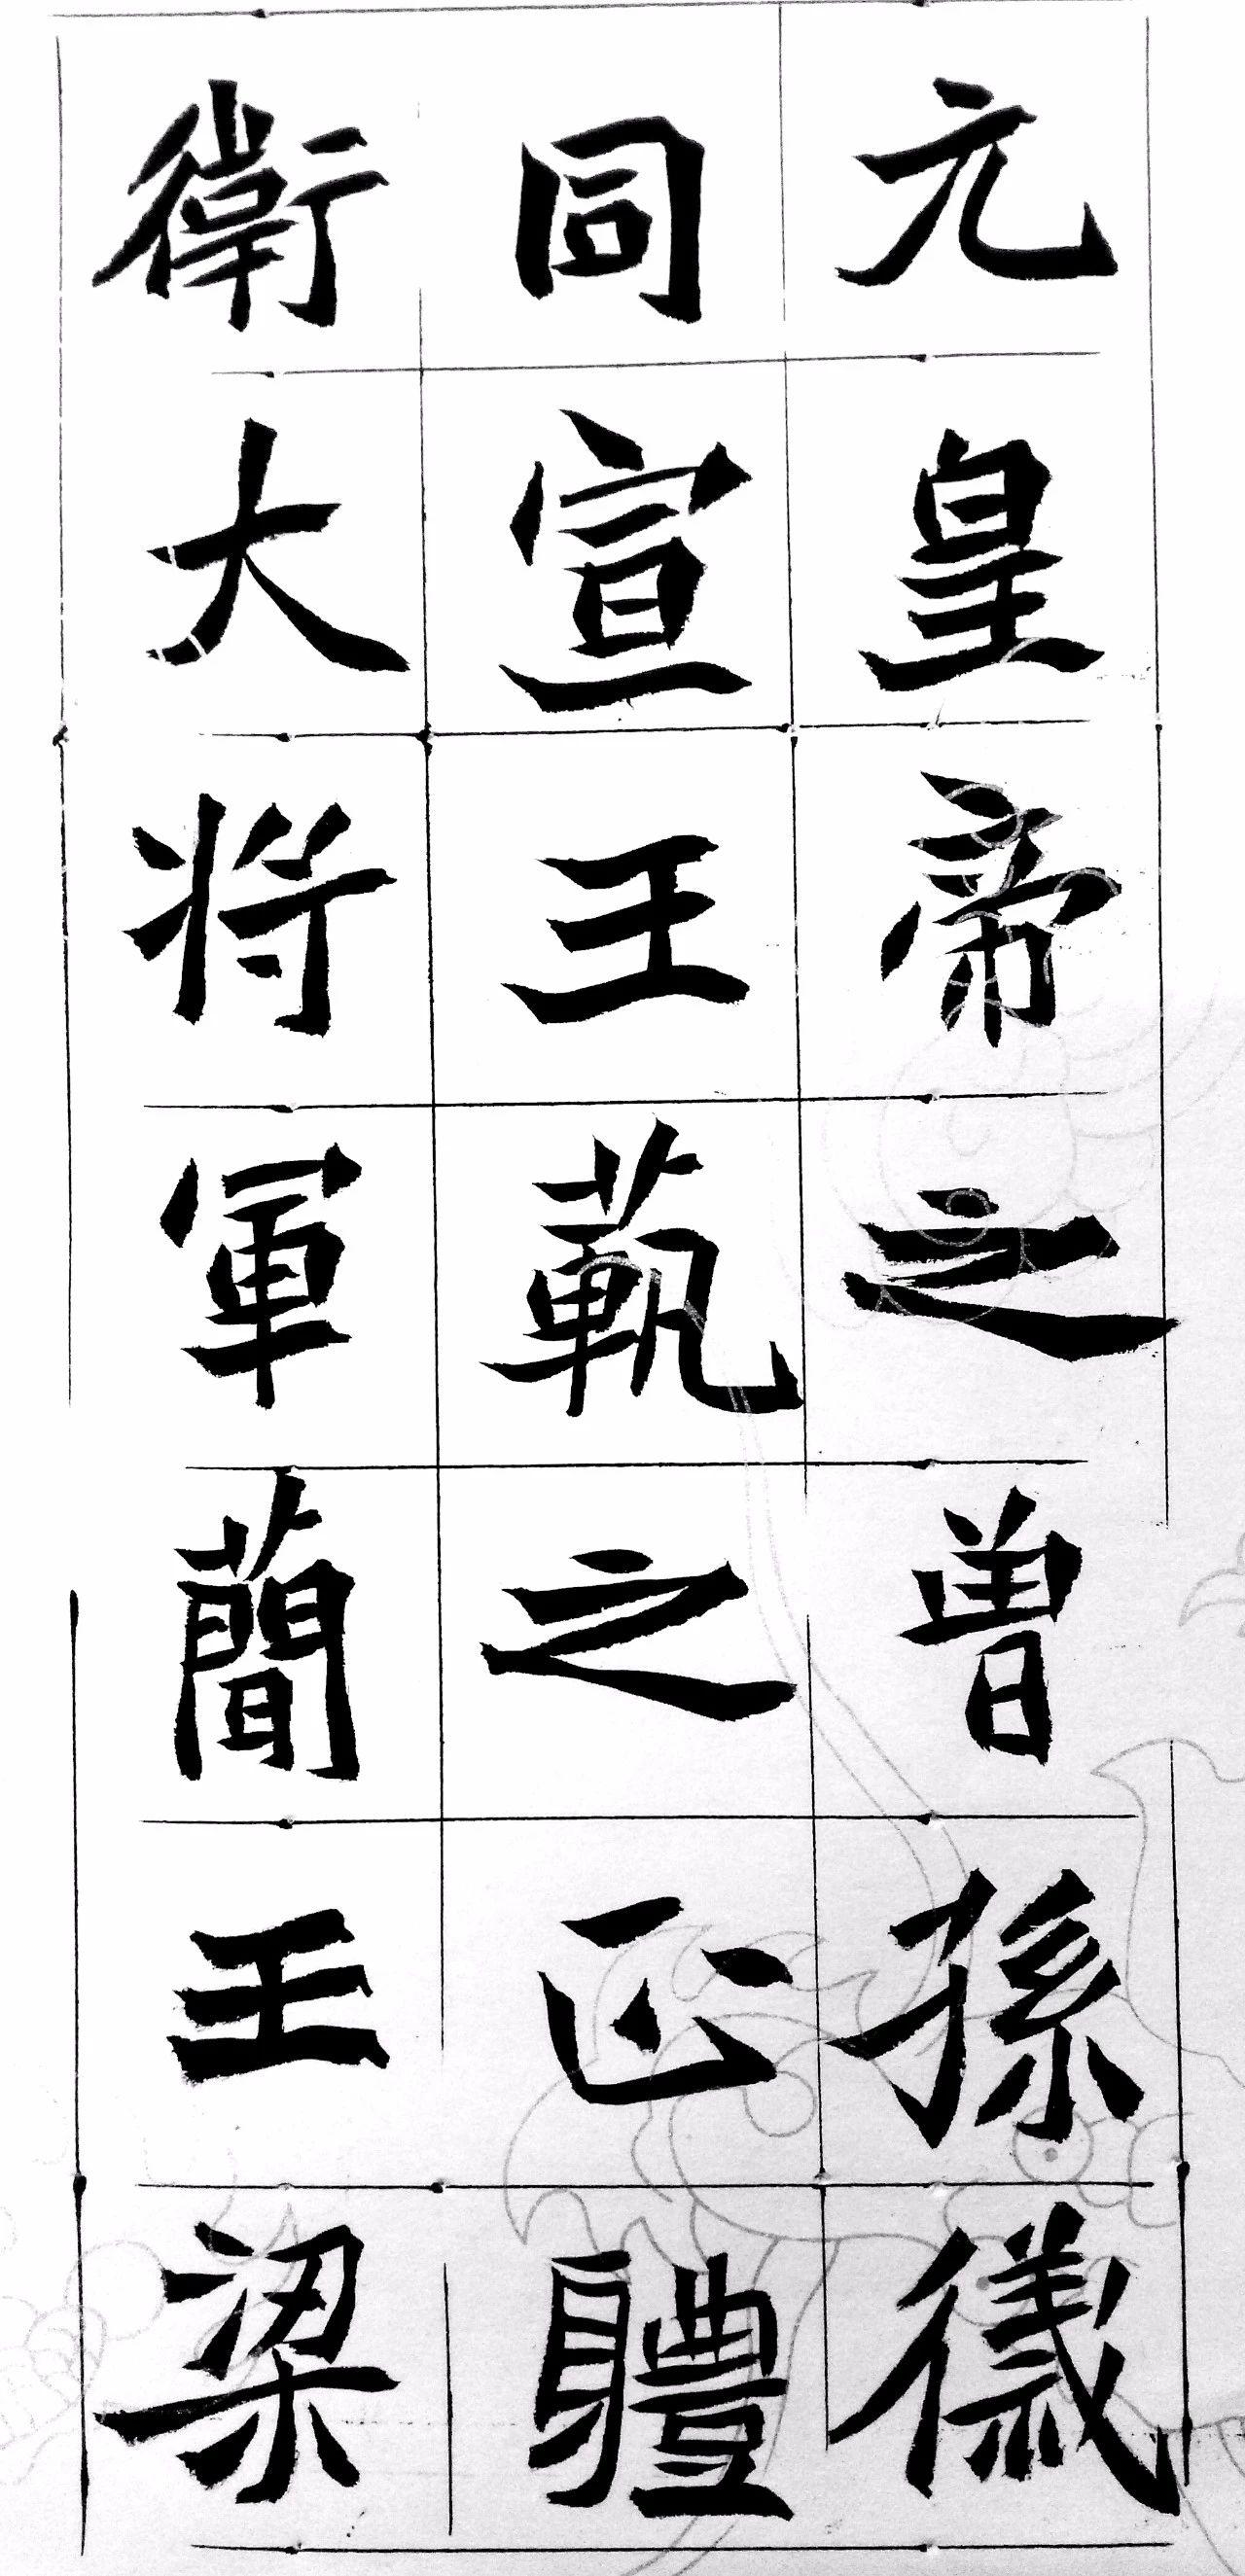 元皇帝之曽孫儀
同宣王範之正體
衛大将軍簡王梁